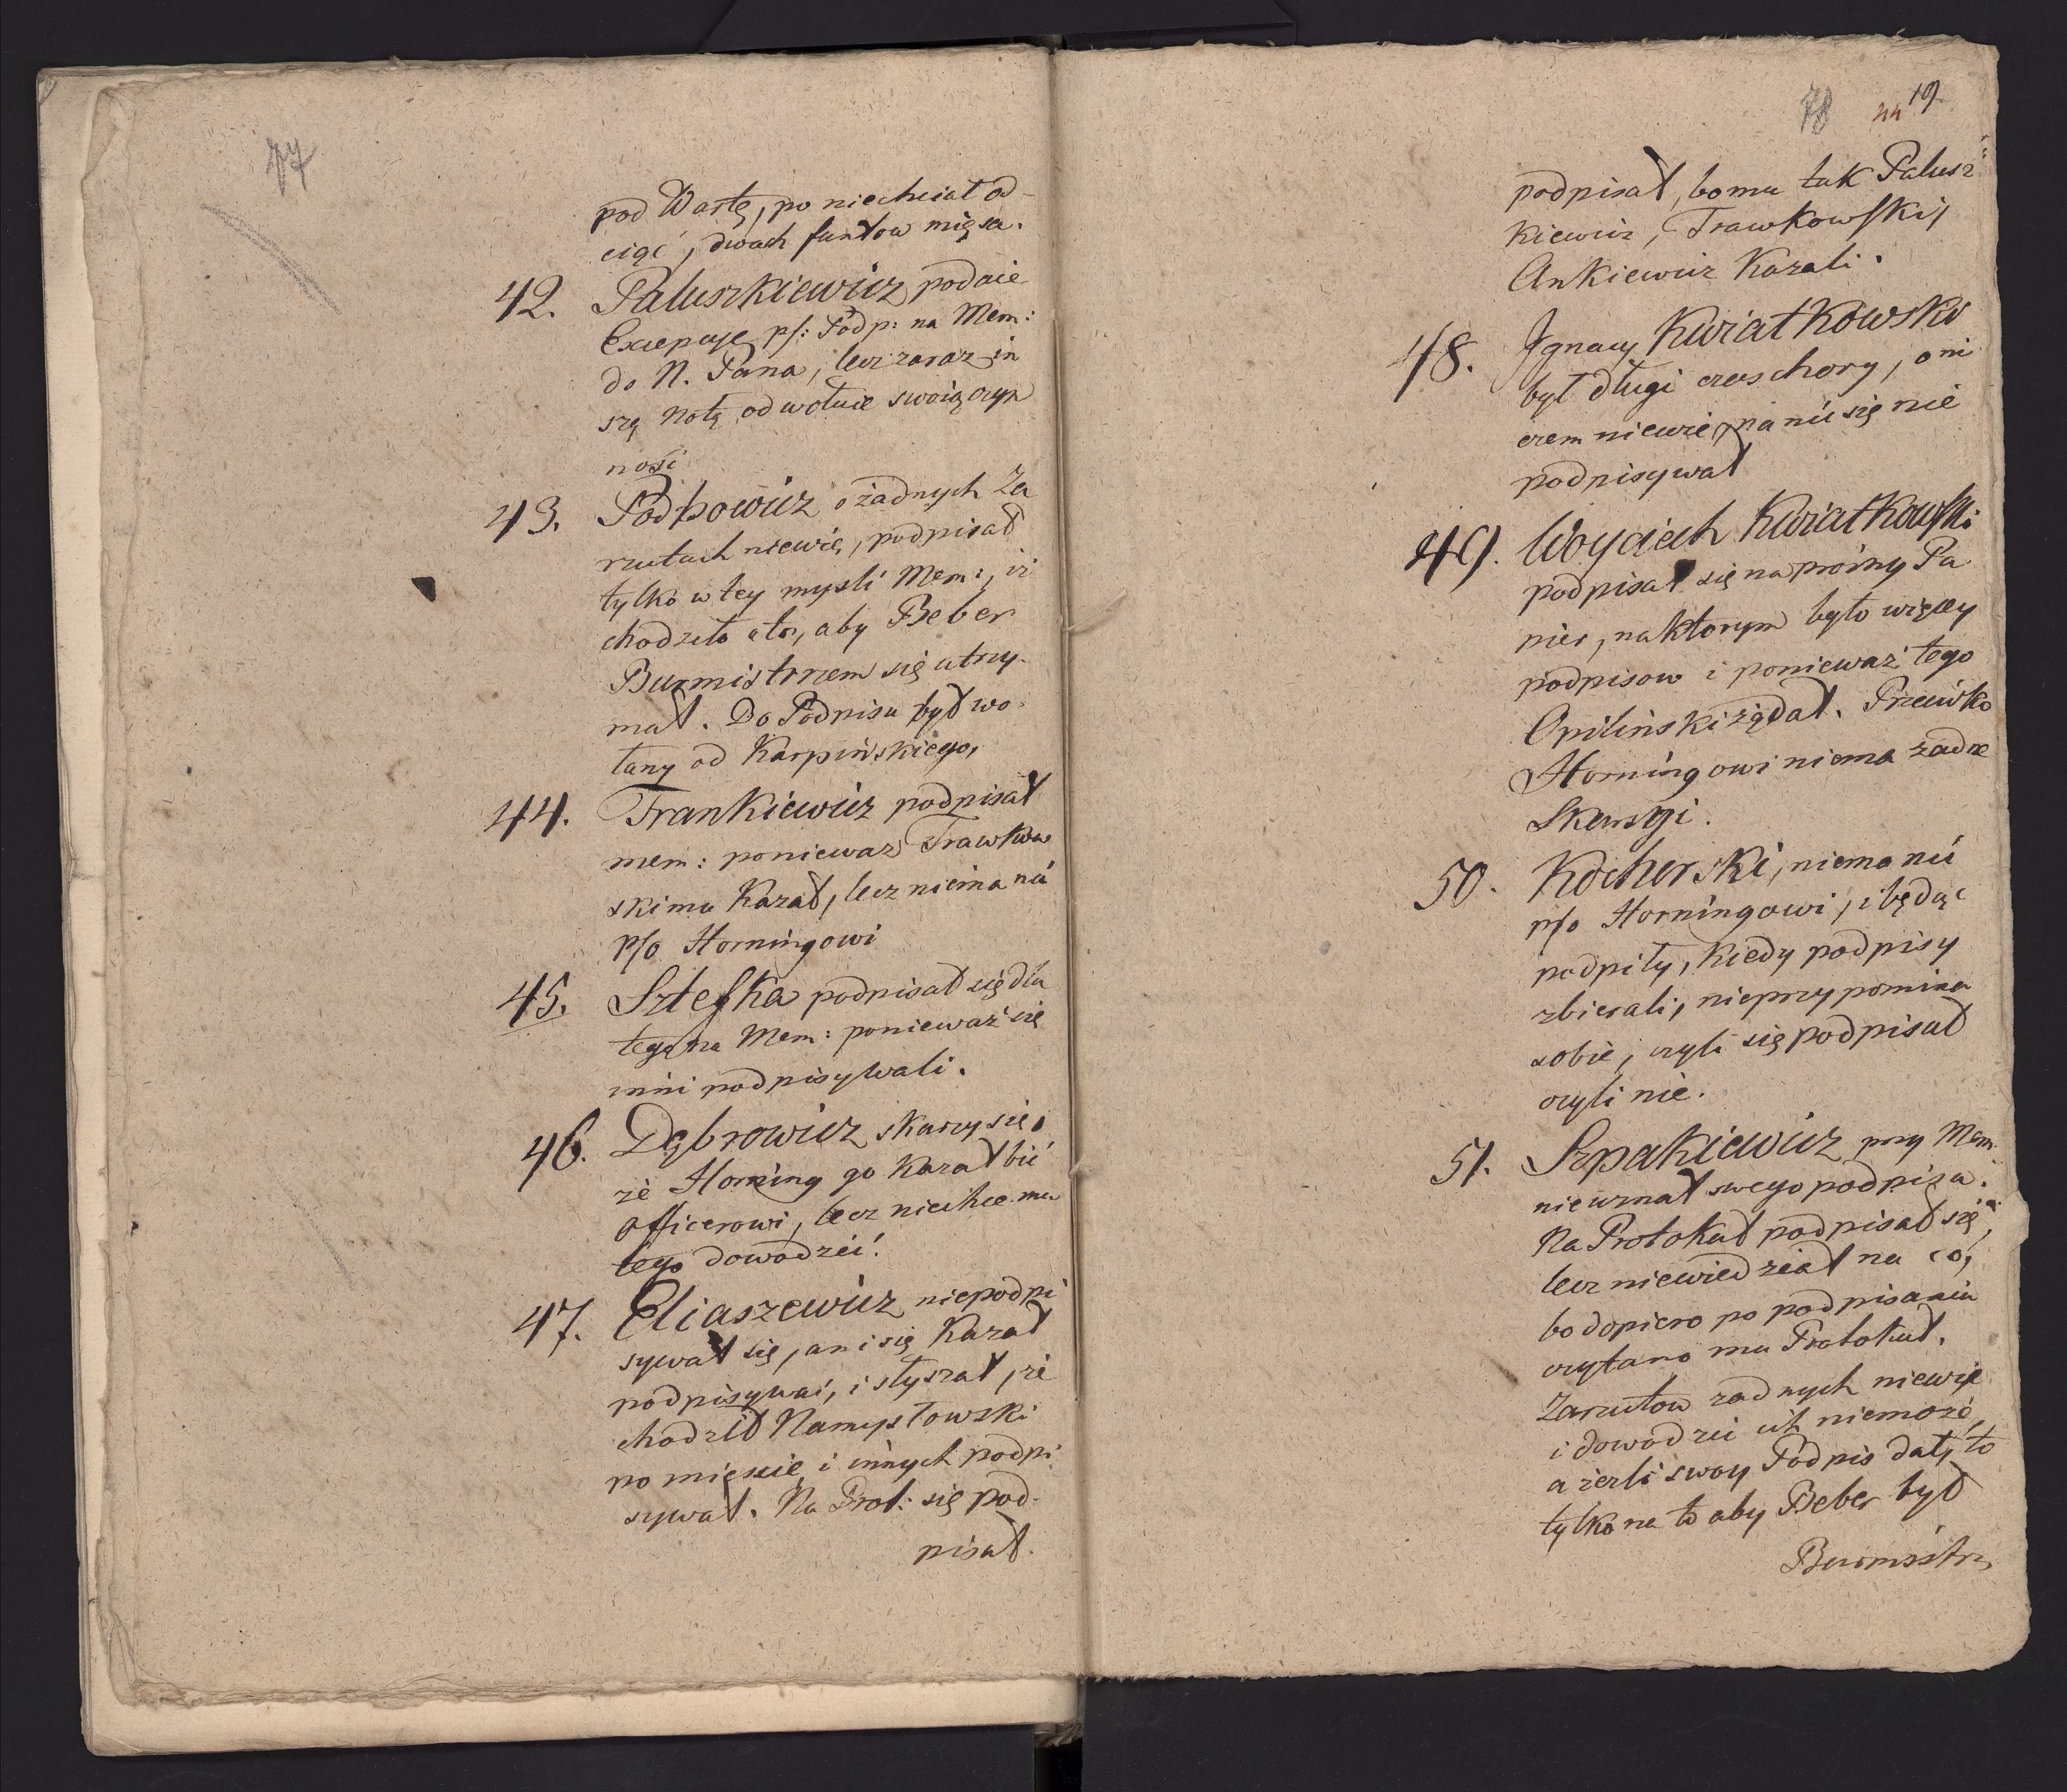 77
pod Wartę, po niechciał od-
ciąć, dwach funtow mięsa.
42. Paluszkiewicz podaie
Excepcye p/: Podp: na Mem:
do N. Pana, lecz zaraz in
szą Notą odwołuie swoią czyn
ność
43. Podkowicz o żadnych Za
rzutach niewie, podpisał
tylko w tey mysli Mem:, iż
chodziło oto, aby Beber
Burmistrzem się utrzy-
mał. Do Podpisu był wo-
łany od Karpińskiego,
44. Frankiewicz podpisał
mem: poniewasz Trawkow
ski mu Kazał, lecz niema nic
p/o Horningowi
45. Sztefka podpisał się dla
tego na Mem: ponieważ się
inni podpisywali.
46. Dąbrowicz skarzy się,
że Horning go Kazał bić
officerowi, lecz niechce mu
tego dowodzić.
47. Eliaszewicz niepodpi
sywał się, ani się Kazał
podpisywać, i słyszał, że
chodził Namysłowski
po mieście i innych podpi
sywał. Na Prot: się pod-
pisał.
78 44 19
podpisał, bo mu tak Palusz
kiewicz, Trawkowski i
Ankiewicz Kazali.
48. Ignacy Kwiatkowski
był długi czas chory, o ni
czem niewie, na nic się nie
podpisywał
49. Woyciech Kwiatkowski
podpisał się na prózny Pa
pier, na ktorym było więcey
podpisow i ponieważ tego
Opiliński żądał. Przeciwko
Horningowi niema żadne
Skargi.
50. Kocherski, niema nic
p/o Horningowi, i będąc
podpiły, kiedy podpisy
zbierali, nieprzypomina
sobie, czyli się podpisał
czyli nie.
51. Szpakiewicz przy Mem:
nieuznał swego podpisu.
Na Protokuł podpisał się,
lecz niewiedział na co,
bo dopiero po podpisaniu
czytano mu Protokuł.
Zarzutow zadnych niewie
i dowodzić ich niemoże,
a jezli swoy Podpis dał, to
tylko na to aby Beber był
Burmistrz,